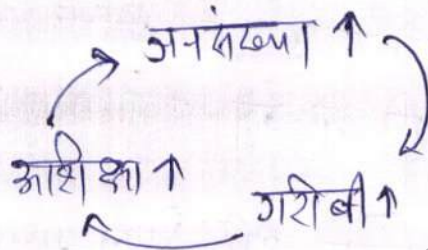 जनसंख्या ↑
अशिक्षा ↑
गरीबी ↑